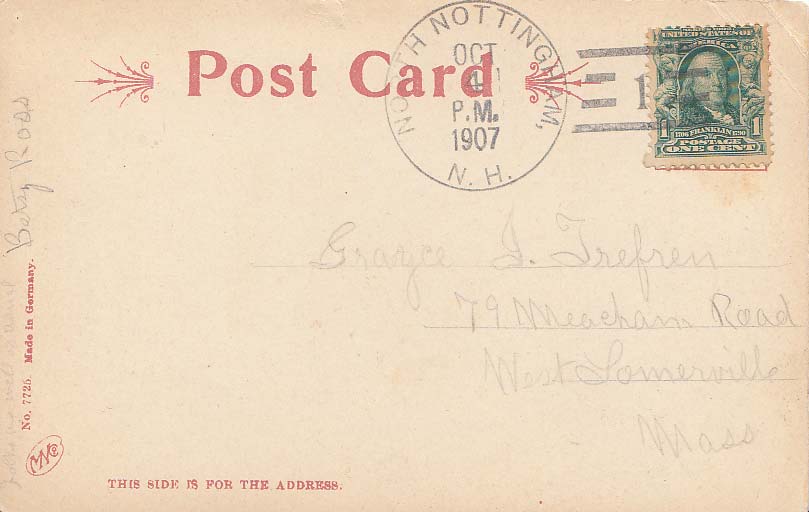 Post Card
NORTH NOTTINGHAM,
OCT
4
P.M.
1907
N. H.
1
UNITED STATES OF
AMERICA
1 1706 FRANKLIN 1790 1
POSTAGE
ONE CENT
Grayce J. Trefren
79 Meacham Road
West Somerville
Mass
Betsy Ross
No. 7725. Made in Germany.
MNCo
THIS SIDE IS FOR THE ADDRESS.